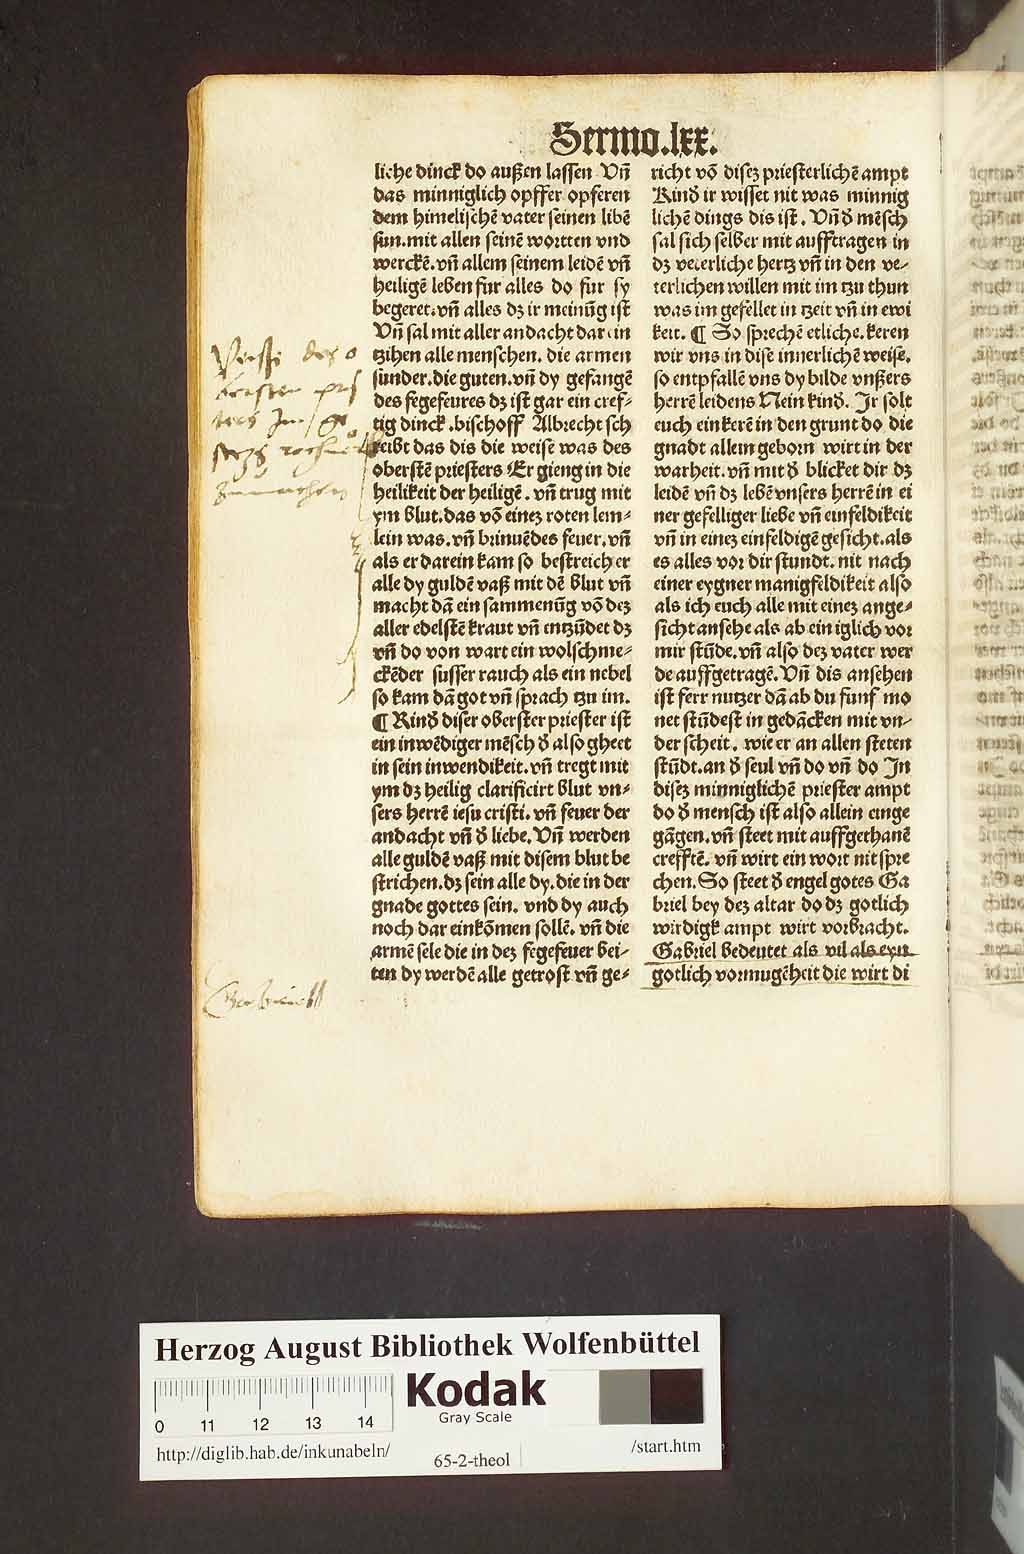 Sermo.lxx.
liche dinck do außen lassen Vn̄
das minniglich opffer opferen
dem himelischē vater seinen libē
sun.mit allen seinē wortten vnd
werckē.vn̄ allem seinem leidē vn̄
heiligē leben fur alles do fur sy
begeret.vn̄ alles dz ir meinūg ist
Vn̄ sal mit aller andacht dar ein
tzihen alle menschen. die armen
sunder.die guten.vn̄ dy gefangē
des fegefeures dz ist gar ein cref⸗
tig dinck.bischoff Albrecht sch
reibt das dis die weise was des
oberstē priesters Er gieng in die
heilikeit der heiligē. vn̄ trug mit
ym blut.das vō einez roten lem⸗
lein was.vn̄ brinnēdes feuer.vn̄
als er darein kam so bestreich er
alle dy guldē vaß mit dē blut vn̄
macht dā ein sammenūg vō dez
aller edelstē kraut vn̄ entzūdet dz
vn̄ do von wart ein wolschme⸗
ckēder susser rauch als ein nebel
so kam dā got vn̄ sprach tzu im.
¶ Kind diser oberster priester ist
ein inwēdiger mēsch d̄ also gheet
in sein inwendikeit.vn̄ tregt mit
ym dz heilig clarificirt blut vn⸗
sers herrē iesu cristi.vn̄ feuer der
andacht vn̄ d̄ liebe.Vn̄ werden
alle guldē vaß mit disem blut be
strichen.dz sein alle dy.die in der
gnade gottes sein. vnd dy auch
noch dar einkōmen sollē. vn̄ die
armē sele die in dez fegefeuer bei⸗
ten dy werdē alle getrost vn̄ ge⸗
richt vō disez priesterlichē ampt
Kind ir wisset nit was minnig
lichē dings dis ist. Vn̄ d̄ mēsch
sal sich selber mit aufftragen in
dz veterliche hertz vn̄ in den ve⸗
terlichen willen mit im tzu thun
was im gefellet in tzeit vn̄ in ewi
keit. ¶ So sprechē etliche.keren
wir vns in dise innerlichē weise.
so entpfallē vns dy bilde vnßers
herrē leidens Nein kind. Ir solt
euch ein kerē in den grunt do die
gnadt allein geborn wirt in der
warheit.vn̄ mit d̄ blicket dir dz
leidē vn̄ dz lebē vnsers herrē in ei
ner gefelliger liebe vn̄ einfeldikeit
vn̄ in einez einfeldigē gesicht.als
es alles vor dir stundt. nit nach
einer eygner manigfeldikeit also
als ich euch alle mit einez ange⸗
sicht ansehe als ab ein iglich vor
mir stūde.vn̄ also dez vater wer
de auffgetragē.Vn̄ dis ansehen
ist ferr nutzer dā ab du funf mo
net stūdest in gedācken mit vn⸗
der scheit. wie er an allen steten
stūdt.an d̄ seul vn̄ do vn̄ do In
disez minniglichē priester ampt
do d̄ mensch ist also allein einge
gāgen.vn̄ steet mit auffgethanē
crefftē. vn̄ wirt ein wort nit spre
chen.So steet d̄ engel gotes Ga
briel bey dez altar do dz gotlich
wirdigk ampt wirt vorbracht.
Gabriel bedeutet als vil als eyn
gotlich vormugēheit die wirt di
Gabriell
Herzog August Bibliothek Wolfenbüttel
Kodak
Gray Scale
0 11 12 13 14
http://diglib.hab.de/inkunabeln/
65-2-theol
/start.htm